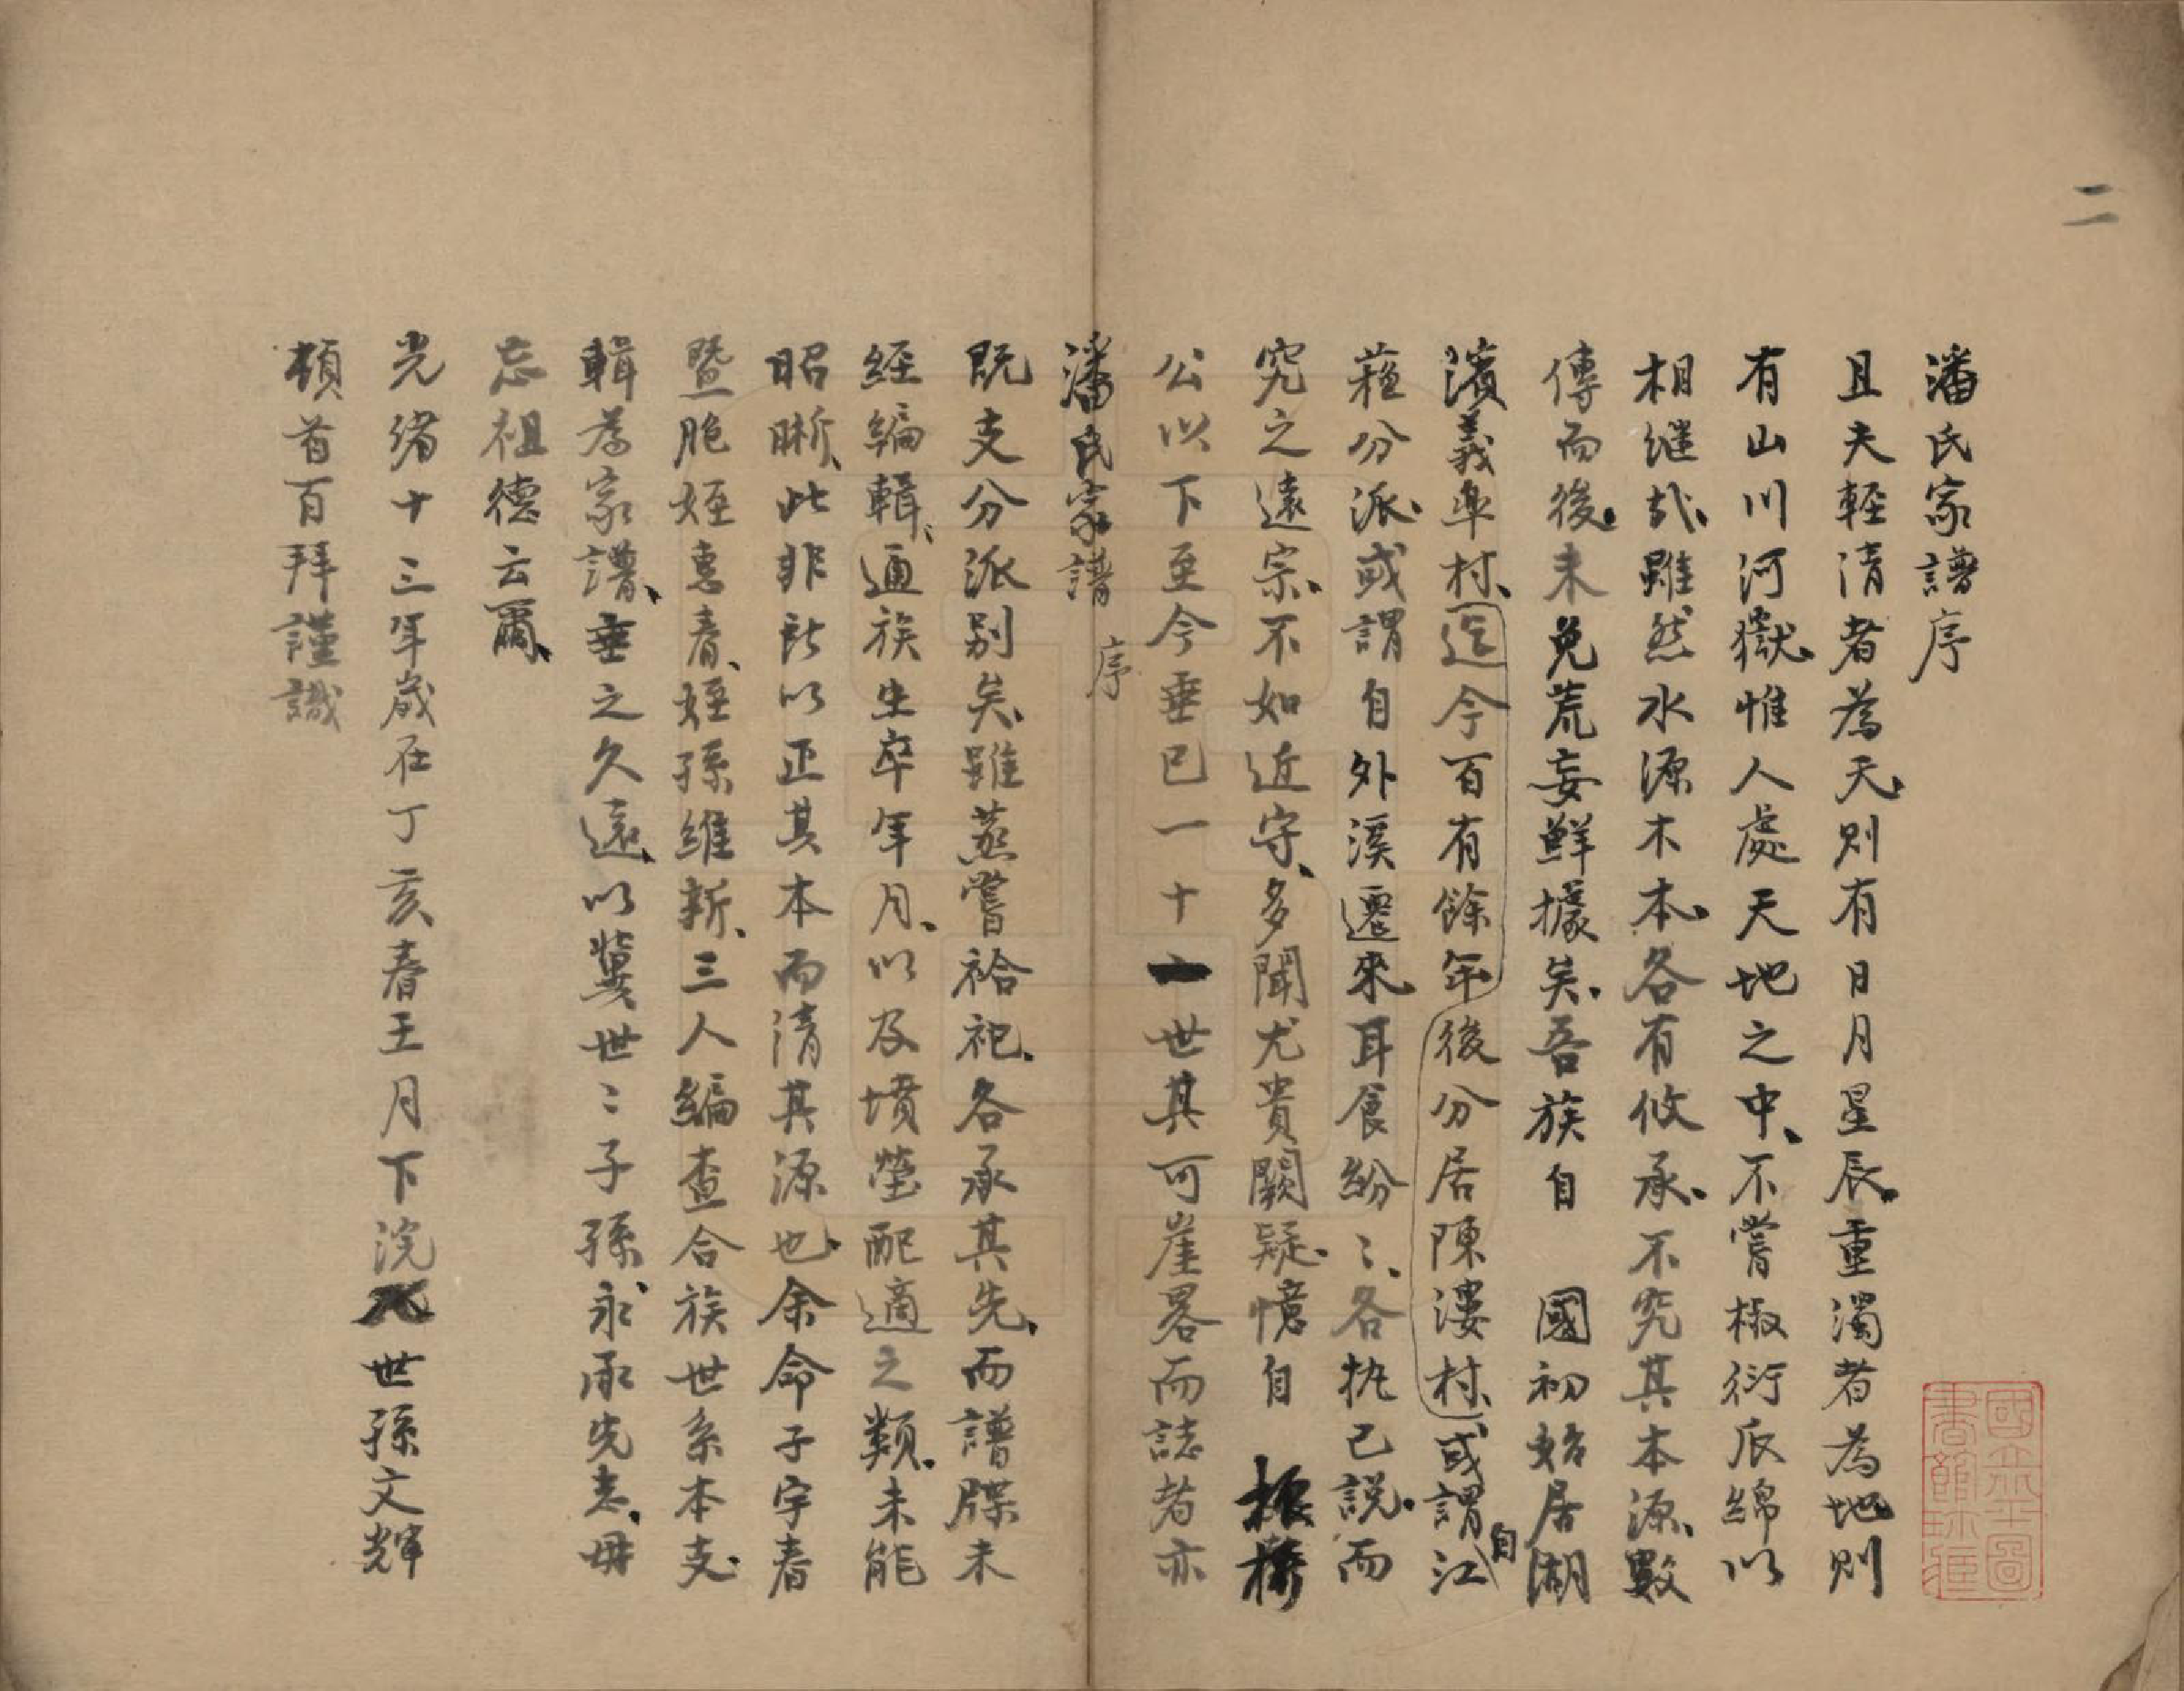 二
潘氏家譜序
且夫輕清者為天、則有日月星辰、重濁者為地、則
有山川河嶽、惟人處天地之中、不嘗椒衍瓜綿以
相继哉、雖然水源木本、各有攸承、不究其本源、數
傳而後、未免荒妄鮮據矣、吾族自 國初始居湖
濱義臯村、迄今百有餘年後分居陳漊村、或謂自江
蘓分派、或謂自外溪遷來、耳食紛〻、各执已説、而
究之遠宗、不如近守、多聞尤貴闕疑、憶自 振橋
公以下至今垂已一十一世其可崖畧而誌者亦
潘氏家譜 序
既支分派别矣、雖蒸嘗袷祀、各承其先、而譜牒未
經編輯、通族生卒年月、以及墳塋配適之類、未能
昭晰、此非所以正其本而清其源也、余命子宇春
暨胞姪惠春、姪孫維新、三人編查合族世系本支、
輯為家譜、垂之久遠、以冀世〻子孫、永承先志、毋
忘祖德云爾、
光緒十三年歲在丁亥春王月下浣世孫文輝
頓首百拜謹識